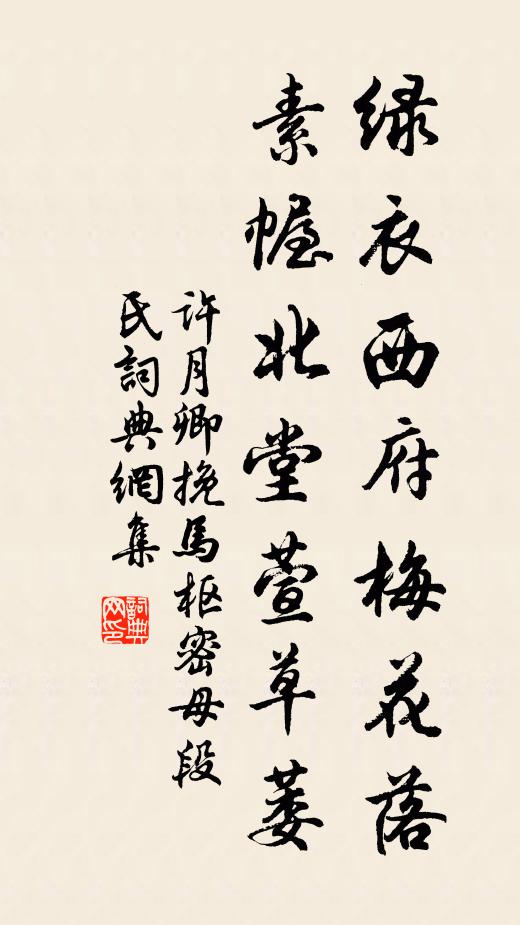 绿衣西府梅花落
素幄北堂萱草萎
許月卿挽馬樞密母段
民詞典網集
詞典网印